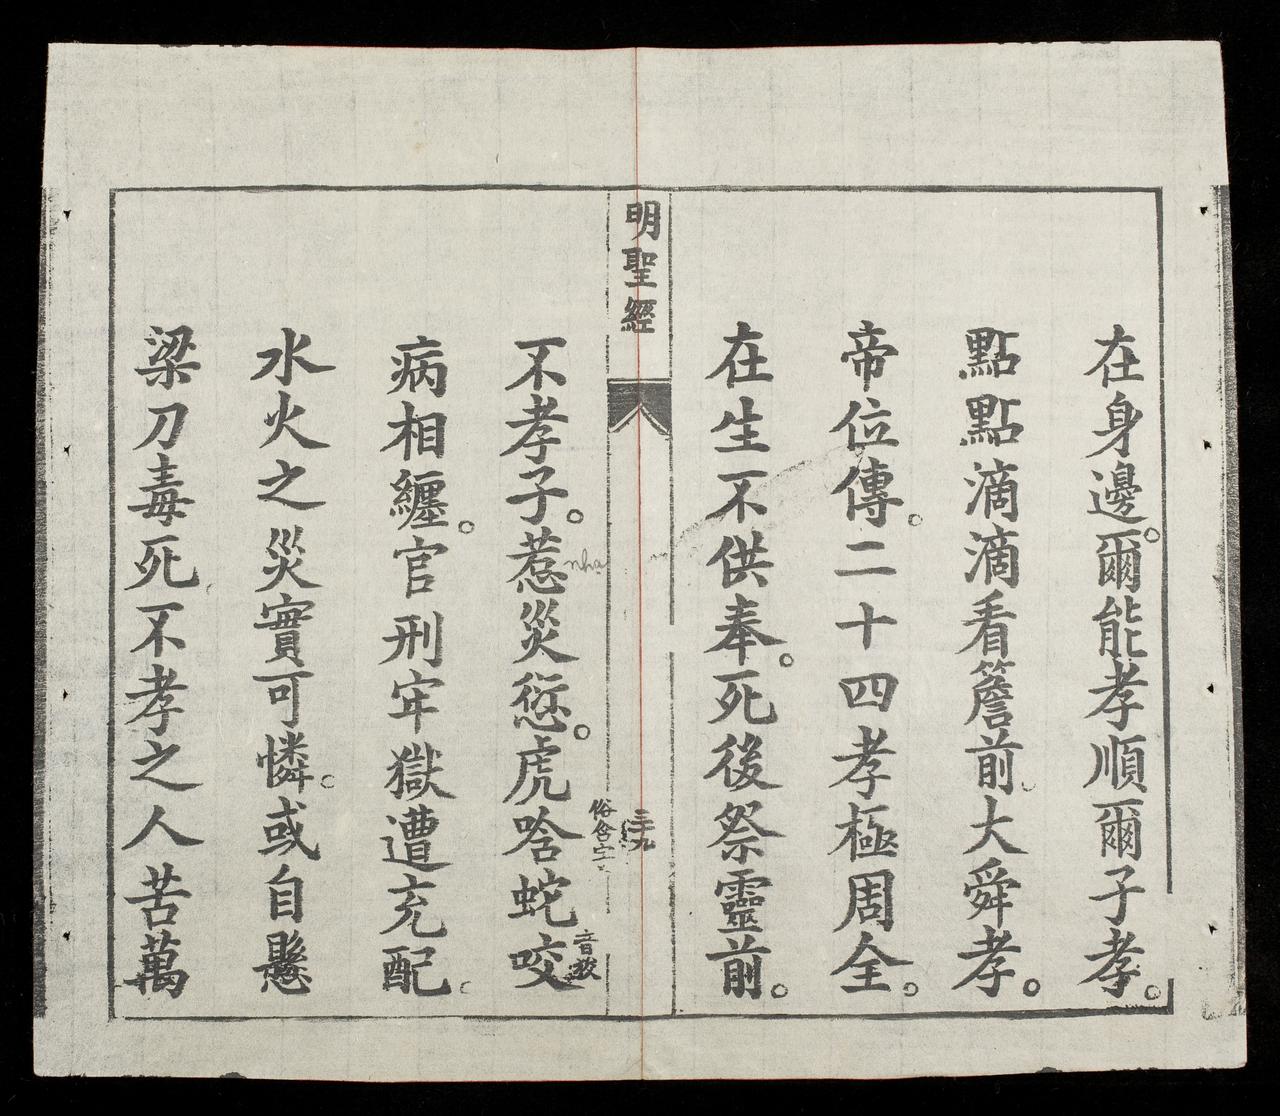 在身邊。爾能孝順爾子孝。
點點滴滴看簷前。大舜孝。
帝位傳。二十四孝極周全。
在生不供奉。死後祭靈前。
明聖經
三十九
不孝子。惹災愆。虎唅蛇咬
nha
俗含字
音教
病相纏。官刑牢獄遭充配。
水火之災實可憐。或自懸
梁刀毒死。不孝之人苦萬